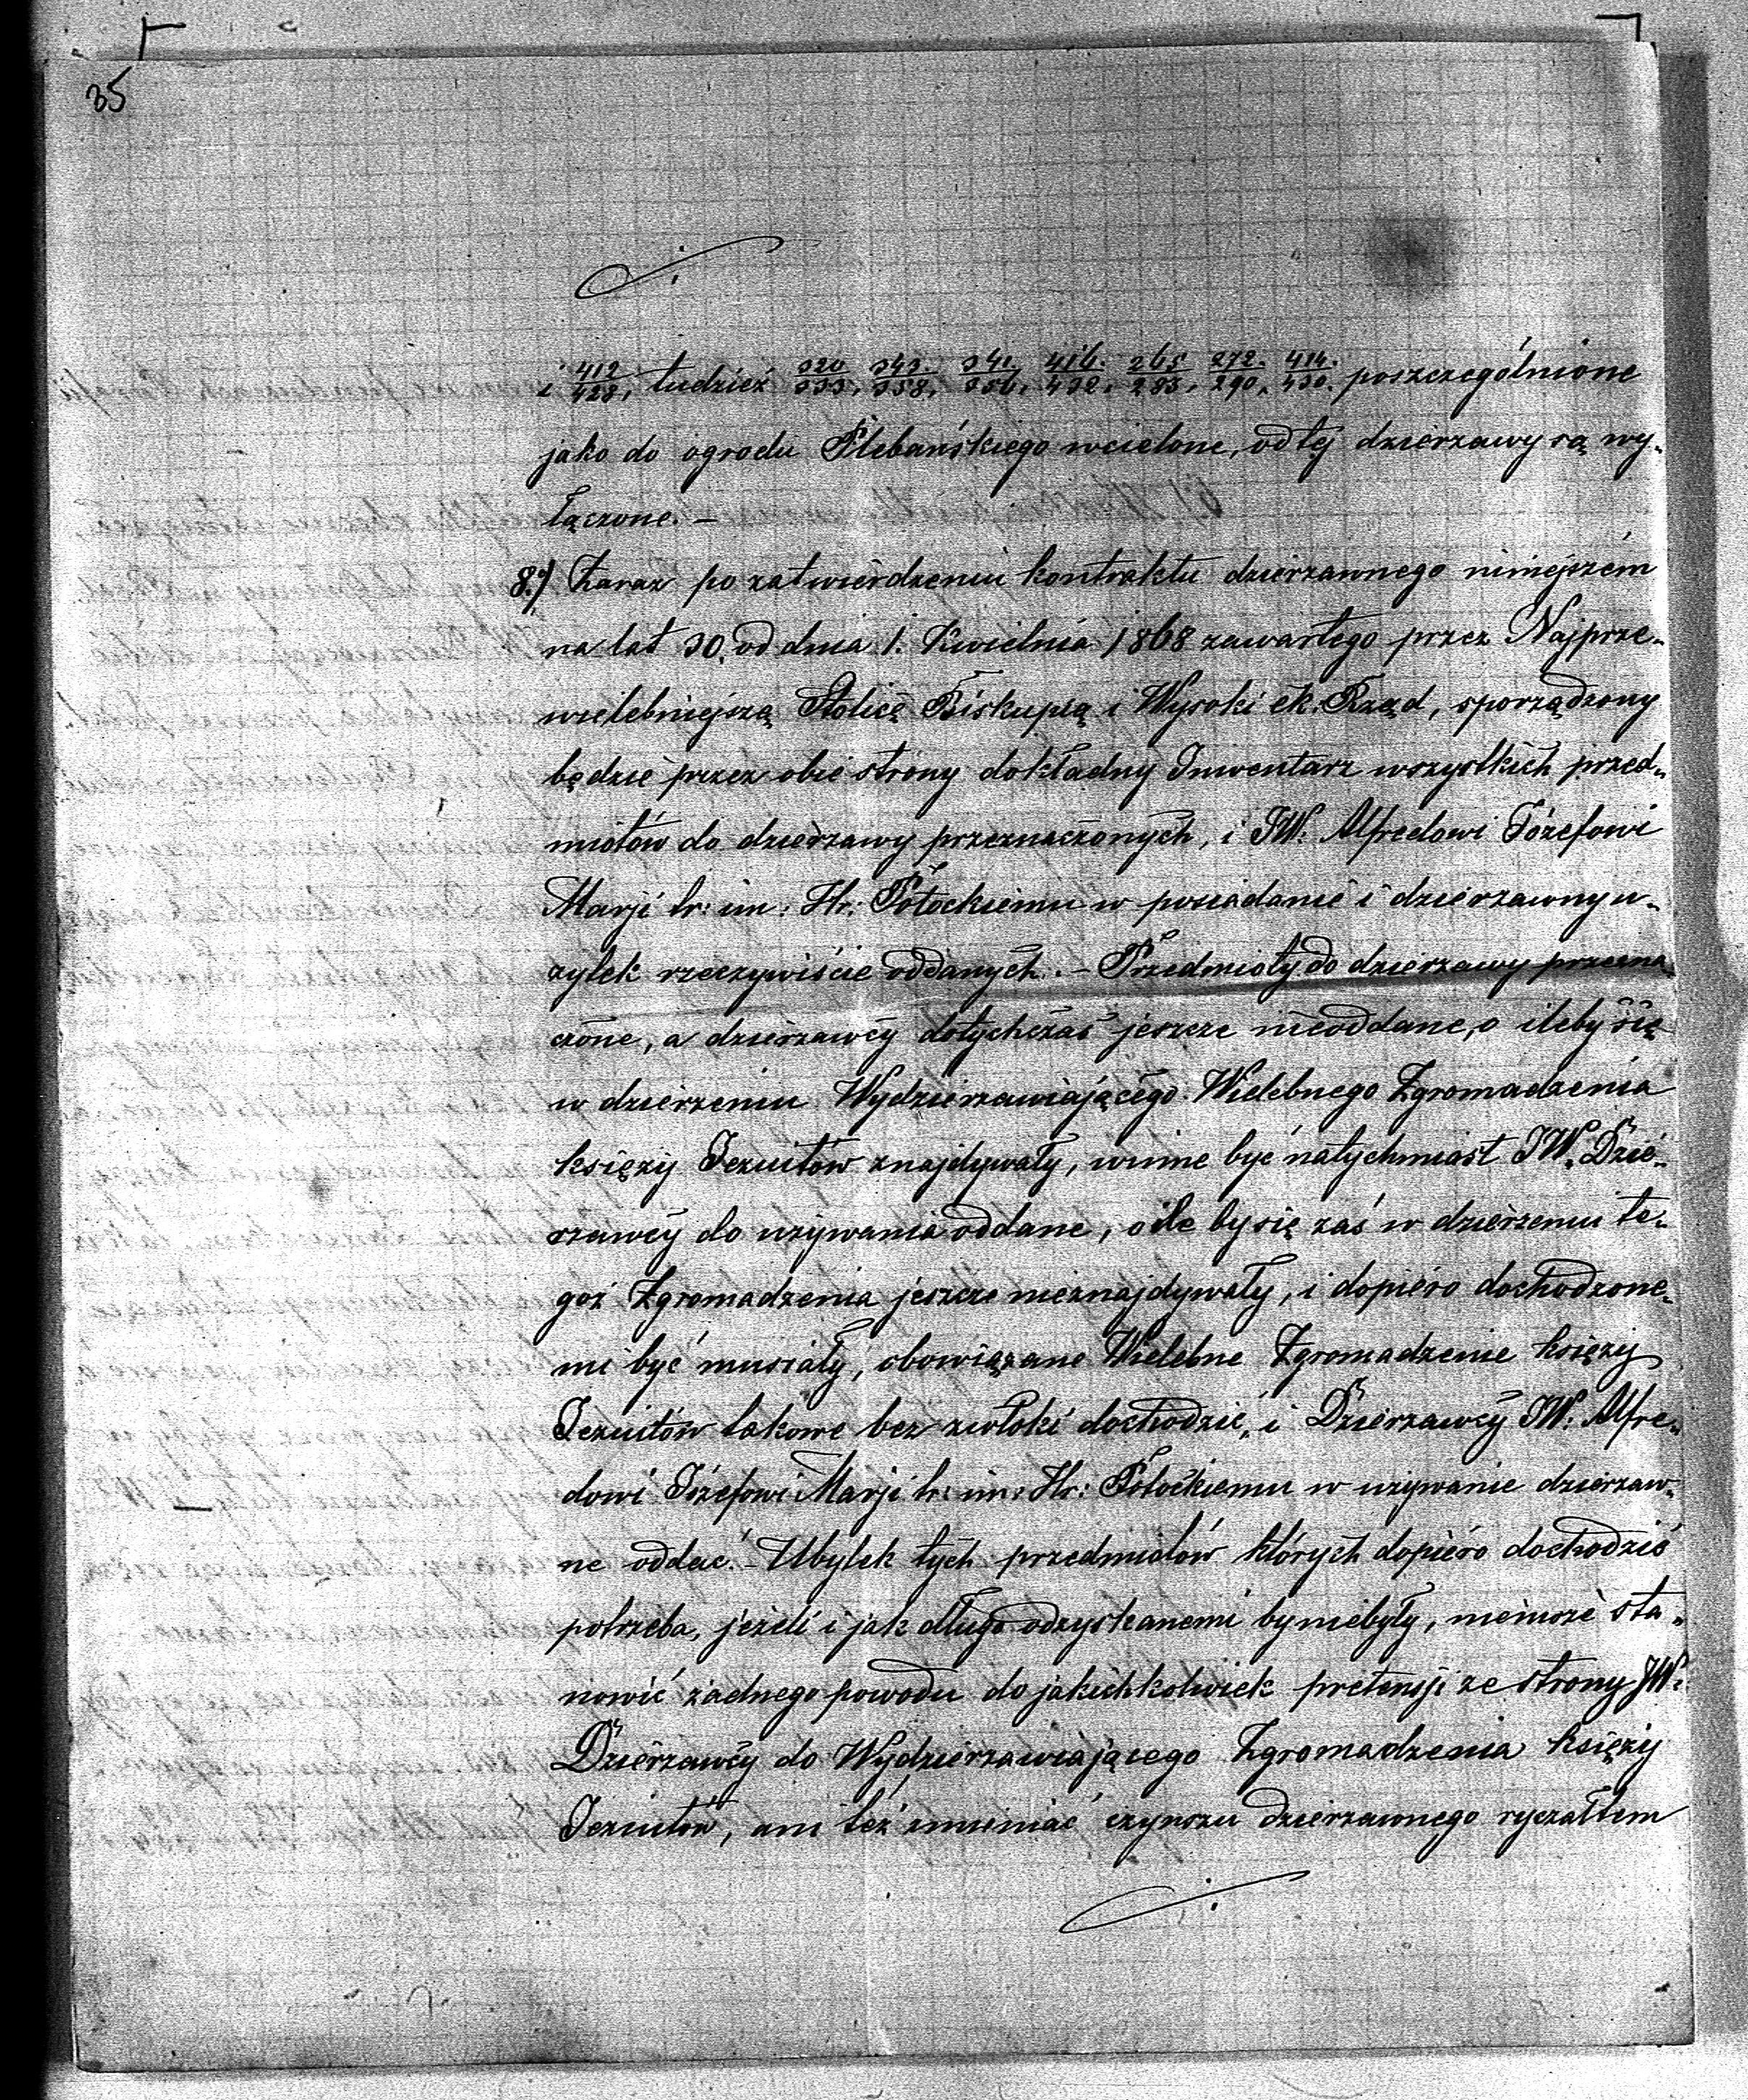 35
i 412/428, tudzież 320/333, 343./358, 341./356, 416./432, 265/283, 272./290, 414./430. poszczególnione
jako do ogrodu Plebańskiego wcielone, od tej dzierzawy są wy„
łączone. –
8.) Zaraz po zatwierdzeniu kontraktu dzierzawnego niniejszém
na lat 30. od dnia 1. Kwietnia 1868 zawartego przez Najprze„
wielebniejszą Stolicę Biskupią i Wysoki ck. Rząd, sporządzony
będzie przez obie strony dokładny Inwentarz wszystkich przed„
miotów do dzierzawy przeznaczonych, i JW. Alfredowi Józefowi
Marji tr: im: Hr: Potockiemu w posiadanie i dzierzawny u„
zytek rzeczywiście oddanych. – Przedmioty do dzierzawy przezna„
czone, a dzierzawcy dotychczas jeszcze nieoddane, o ileby się
w dzierzeniu Wydzierzawiającego Wielebnego Zgromadzenia
księzy Jezuitów znajdywały, winne być natychmiast JW. Dzie„
rzawcy do uzywania oddane, o ile by się zaś w dzierzeniu te„
goż Zgromadzenia jeszcze nieznajdywały, i dopiéro dochodzone„
mi być musiały, obowiązane Wielebne Zgromadzenie księzy
Jezuitów takowe bez zwłoki dochodzić, i Dzierzawcy JW. Alfre„
dowi Józefowi Marji tr: im: Hr: Potockiemu w uzywanie dzierzaw„
ne oddać. – Ubytek tych przedmiotów których dopiéro dochodzić
potrzeba, jeżeli i jak długo odzyskanemi by niebyły, niemoże sta„
nowić żadnego powodu do jakichkolwiek pretensji ze strony JW.
Dzierzawcy do Wydzierzawiającego Zgromadzenia księzy
Jezuitów, ani też zmieniać czynszu dzierzawnego ryczałtem